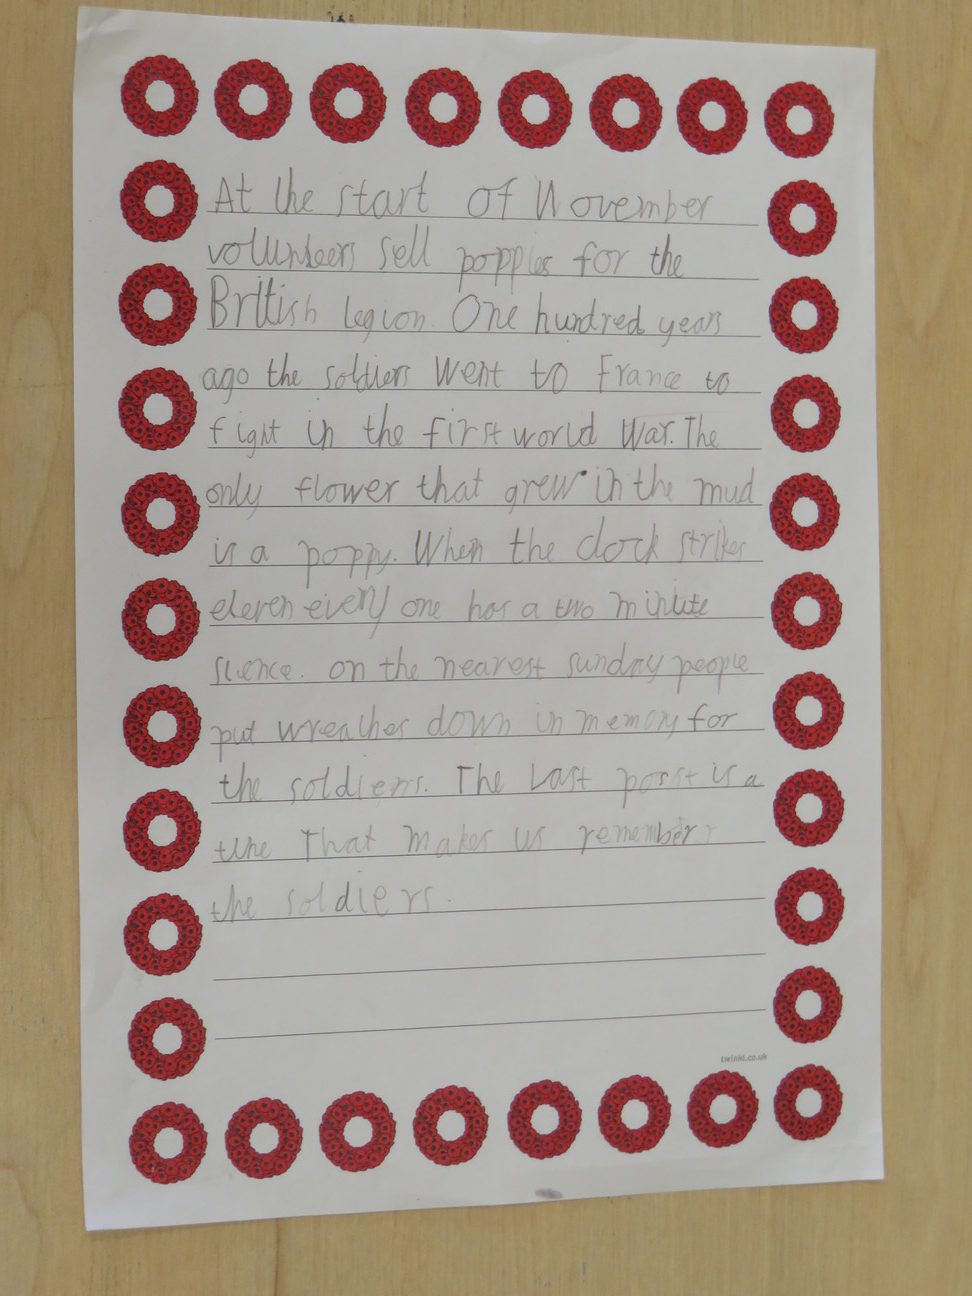 At the start of November
volunteers sell poppies for the
British legion. One hundred years
ago the soldiers went to France to
fight in the first world War. The
only flower that grew in the mud
is a poppy. When the clock strikes
eleven every one has a two minute
silence. on the nearest sunday people
put wreathes down in memory for
the soldiers. The Last porst is a
tune That makes us remember
the soldiers.
twinkl.co.uk